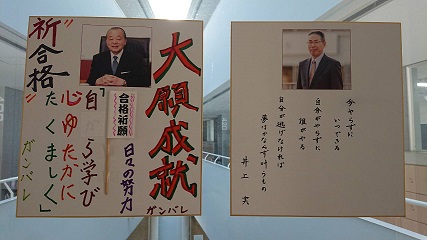 大願成就
ガンバレ
合格祈願
日々の努力
"祈合格"
「自ら学び
心ゆたかに
たくましく」
ガンバレ
今やらずに
いつできる
自分がやらずに
誰がやる
自分が逃げなければ
夢はかなう
井上実